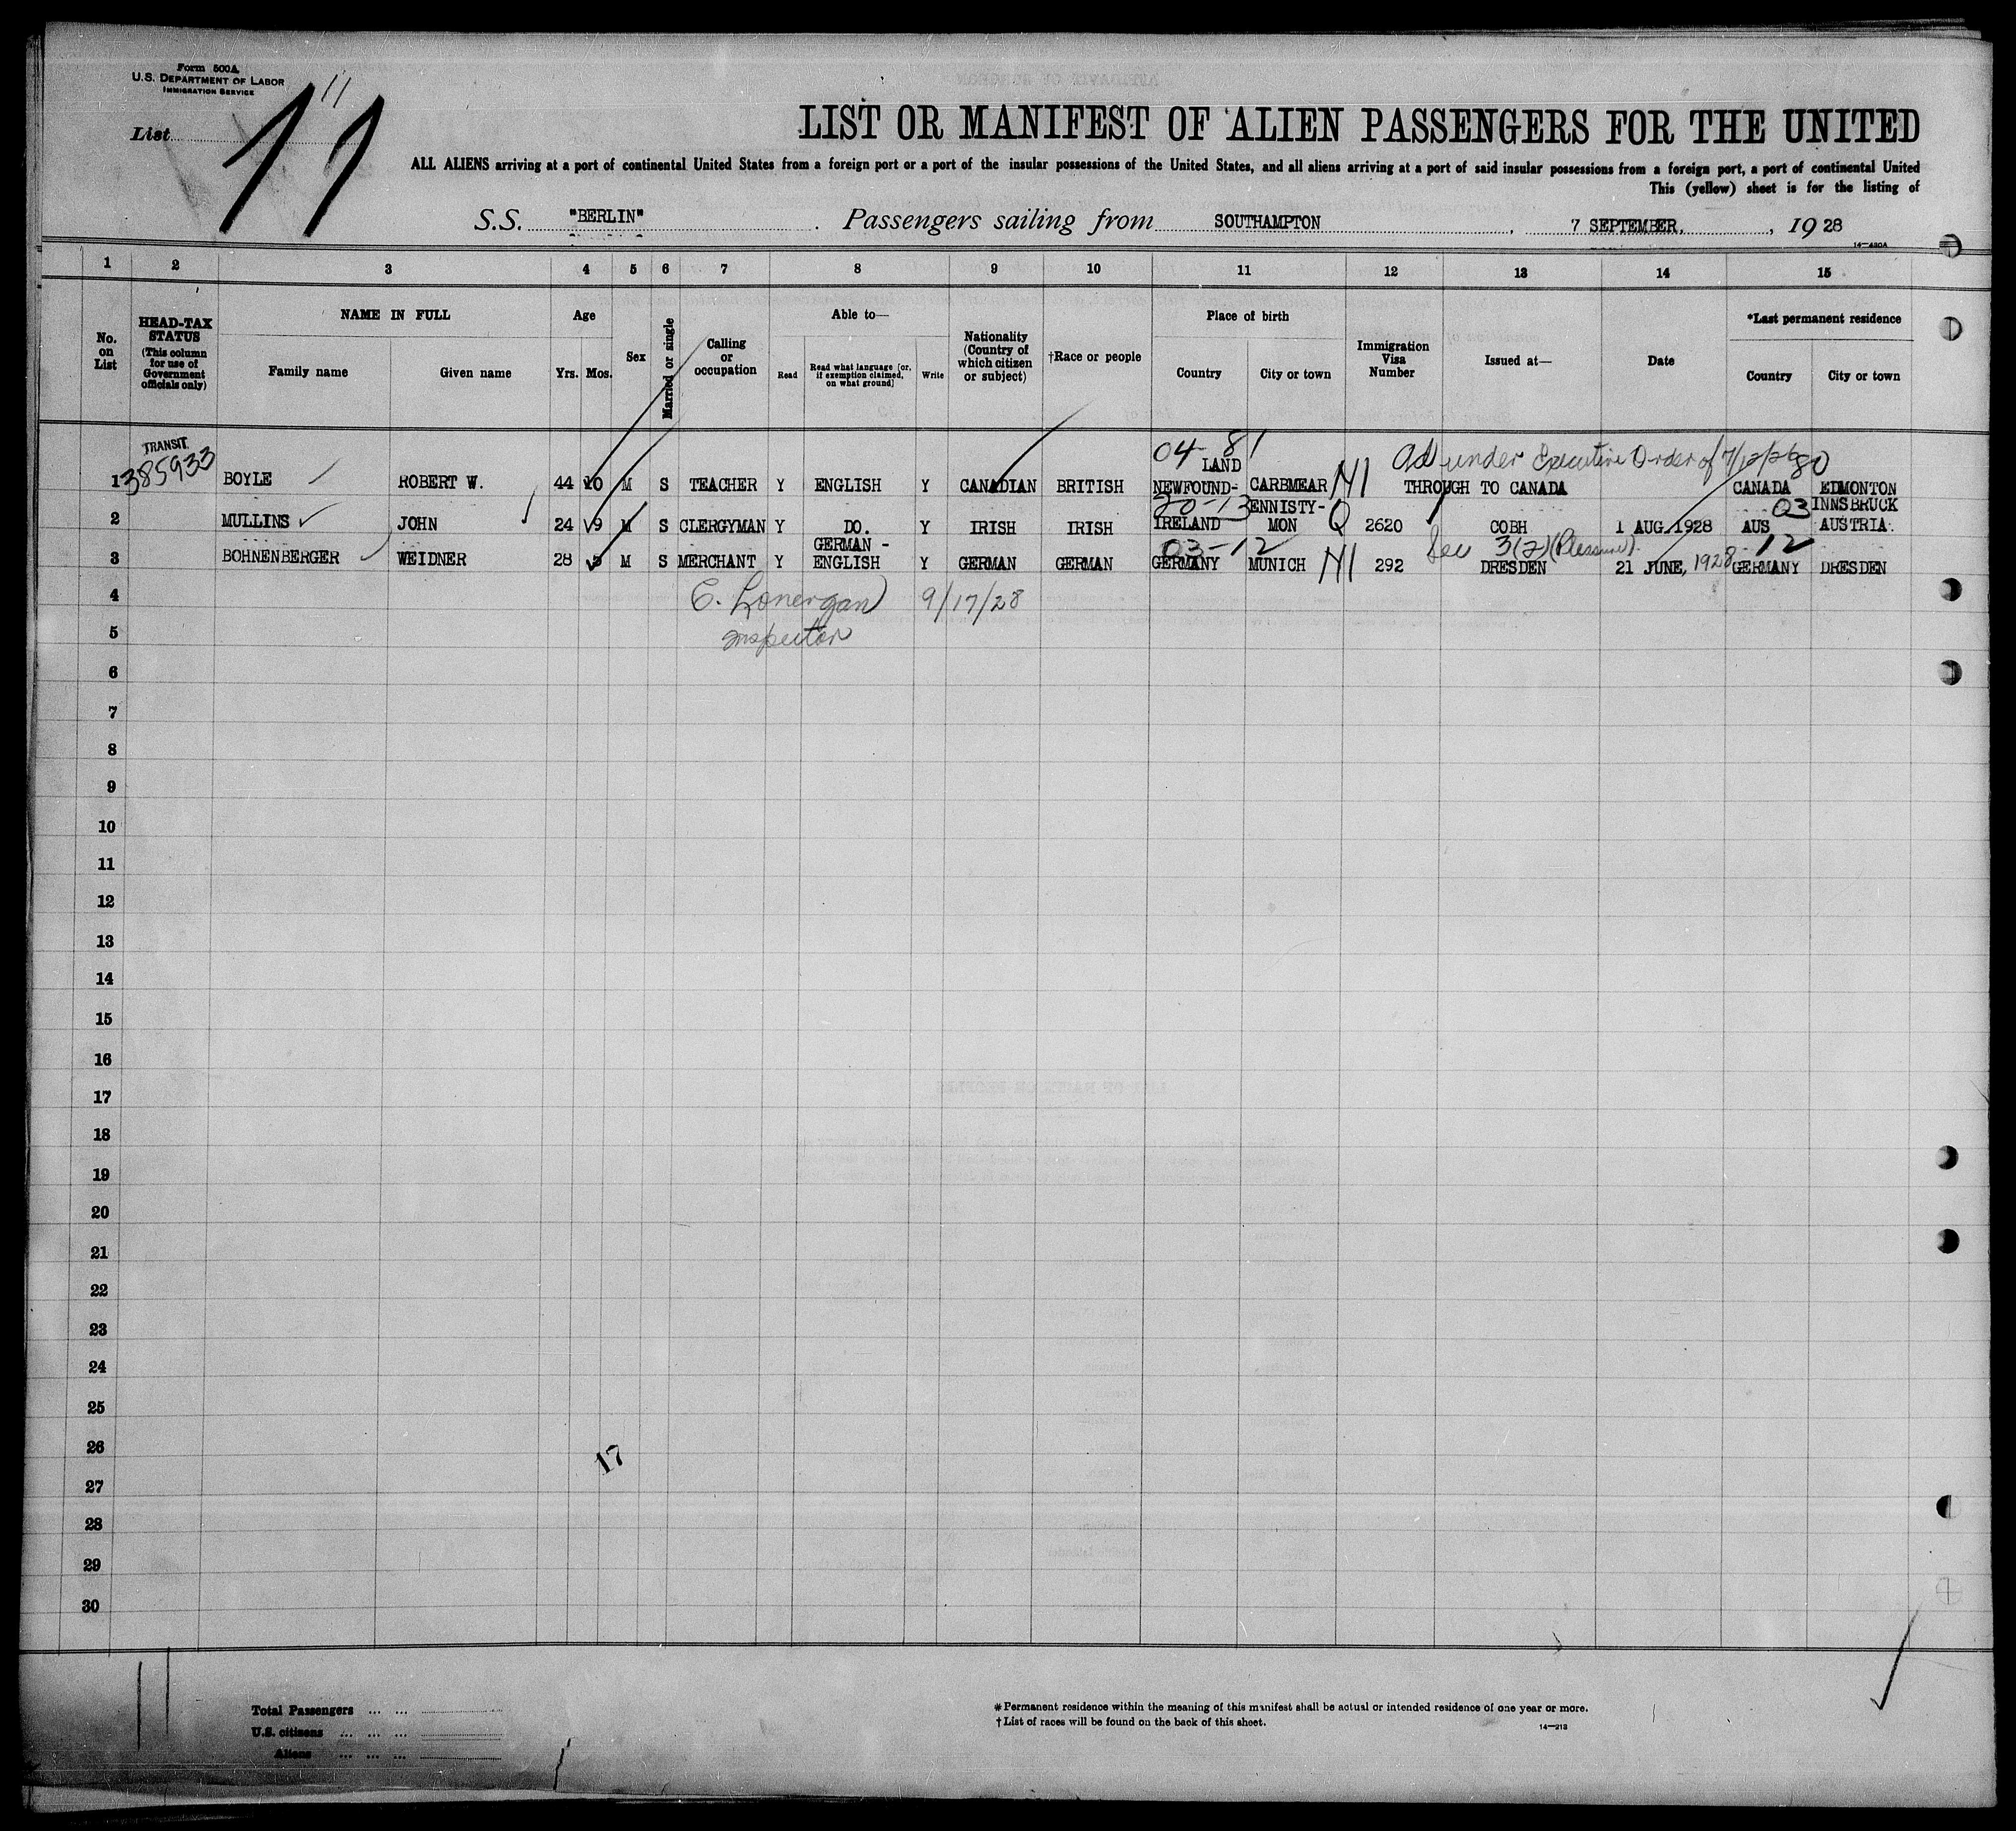 Form 500A
U.S. DEPARTMENT OF LABOR
IMMIGRATION SERVICE
List 11
11
LIST OR MANIFEST OF ALIEN PASSENGERS FOR THE UNITED
ALL ALIENS arriving at a port of continental United States from a foreign port or a port of the insular possessions of the United States, and all aliens arriving at a port of said insular possessions from a foreign port, a port of continental United
This (yellow) sheet is for the listing of
S.S. "BERLIN" Passengers sailing from SOUTHAMPTON, 7 SEPTEMBER, 1928
14—430A
1 2 3 4 5 6 7 8 9 10 11 12 13 14 15
No. on List
HEAD-TAX STATUS (This column for use of Government officials only)
NAME IN FULL
Family name Given name
Age
Yrs. Mos.
Sex
Married or single
Calling or occupation
Able to—
Read Read what language [or, if exemption claimed, on what ground] Write
Nationality (Country of which citizen or subject)
†Race or people
Place of birth
Country City or town
Immigration Visa Number
Issued at—
Date
*Last permanent residence
Country City or town
TRANSIT 04-81 Ad under Executive Order of 7/12/26 80
LAND
1 385933 BOYLE ROBERT W. 44 10 M S TEACHER Y ENGLISH Y CANADIAN BRITISH NEWFOUND- CARBMEAR NI THROUGH TO CANADA CANADA EDMONTON
20-13 ENNISTY- 03 INNSBRUCK
2 MULLINS JOHN 24 9 M S CLERGYMAN Y DO. Y IRISH IRISH IRELAND MON Q 2620 COBH 1 AUG. 1928 AUS AUSTRIA.
GERMAN - 03-12 Sec 3(2)(Pleasure) 12
3 BOHNENBERGER WEIDNER 28 5 M S MERCHANT Y ENGLISH Y GERMAN GERMAN GERMANY MUNICH NI 292 DRESDEN 21 JUNE, 1928 GERMANY DRESDEN
4 C. Lonergan 9/17/28
5 Inspector
6
7
8
9
10
11
12
13
14
15
16
17
18
19
20
21
22
23
24
25
26
17
27
28
29
30
Total Passengers ... ...
U.S. citizens ... ... ...
Aliens ... ... ...
*Permanent residence within the meaning of this manifest shall be actual or intended residence of one year or more.
†List of races will be found on the back of this sheet.
14—213